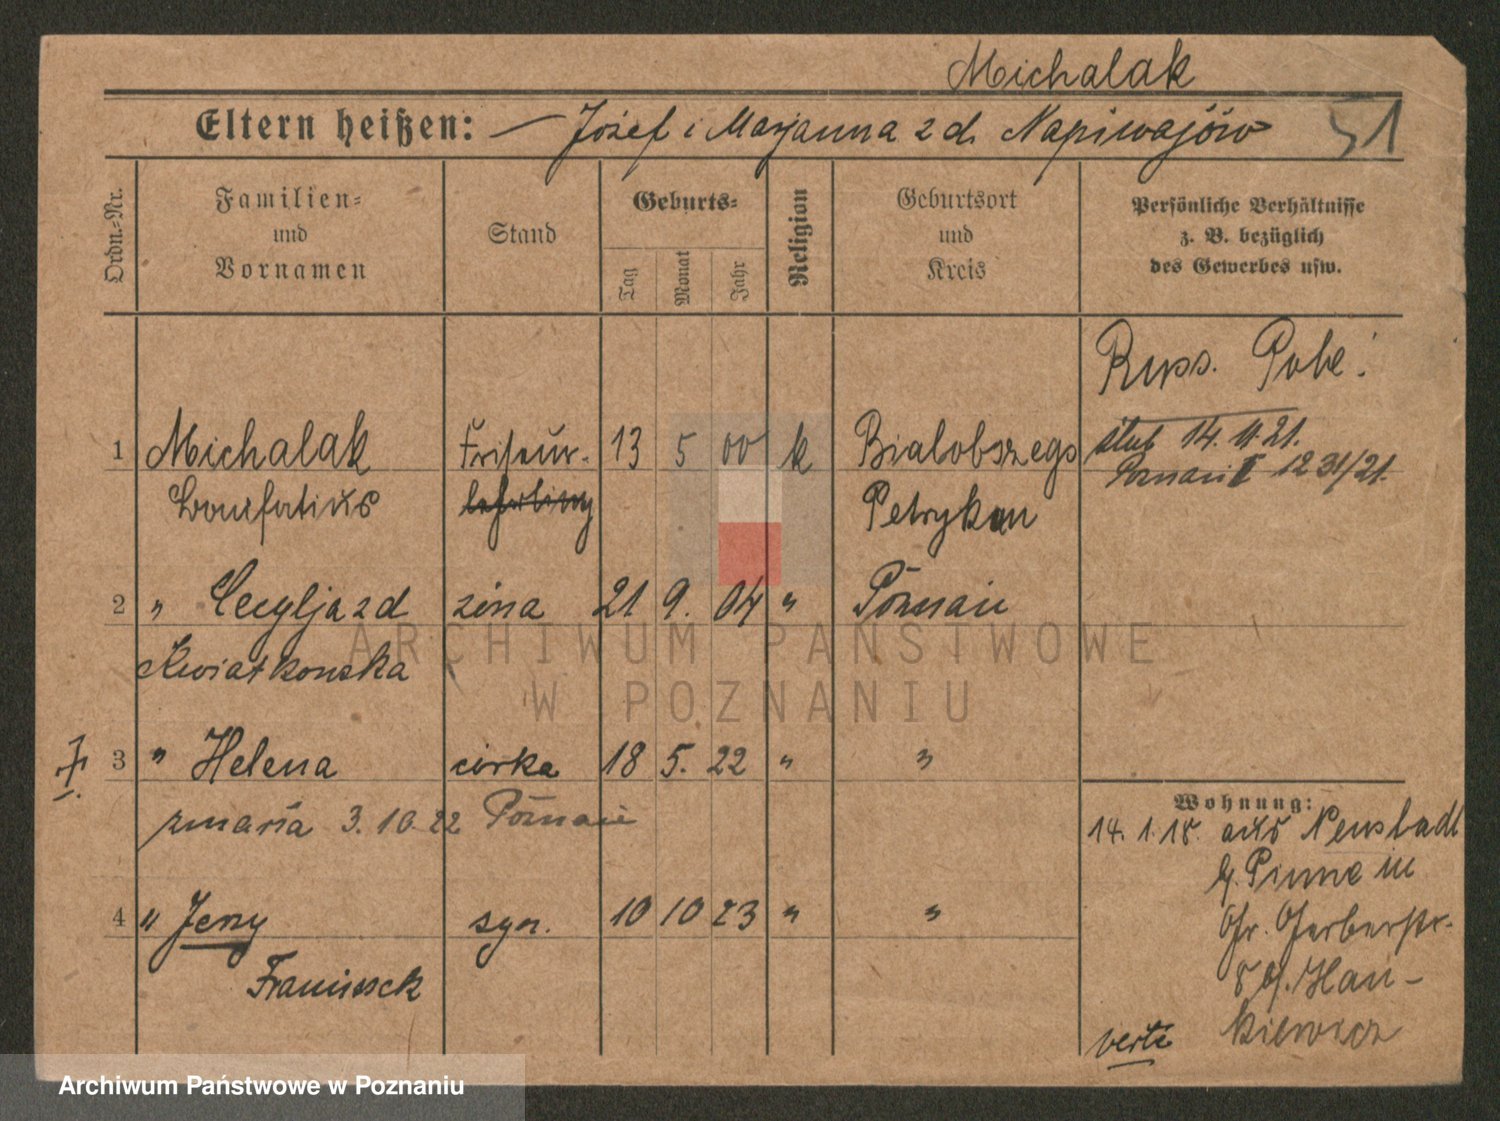 Michalak
Eltern heißen: Józef i Marjanna z d. Napiwajów 51
Ordn.-Nr.
Familien-
und
Vornamen
Stand
Geburts-
Tag
Monat
Jahr
Religion
Geburtsort
und
Kreis
Persönliche Verhältnisse
z. B. bezüglich
des Gewerbes usw.
Russ. Pole!
1 Michalak Friseur- 13 5 00 k Bialobszegs
ślub 14. 11. 21.
Poznań 1231/21.
Bonifatius lehrling Petrykau
2 " Cecylja z d żona 21 9. 04 " Poznań
Kwiatkowska
3 " Helena córka 18 5. 22 " "
zmarła 3. 10. 22 Poznań
4 " Jerzy syn. 10 10 23 " "
Franciszek
Wohnung:
14. 1. 18. aus Neustadt
b. Pinne in
Gr. Gerberstr.
8 b. Han-
kiewicz
verte
ARCHIWUM PAŃSTWOWE
W POZNANIU
Archiwum Państwowe w Poznaniu